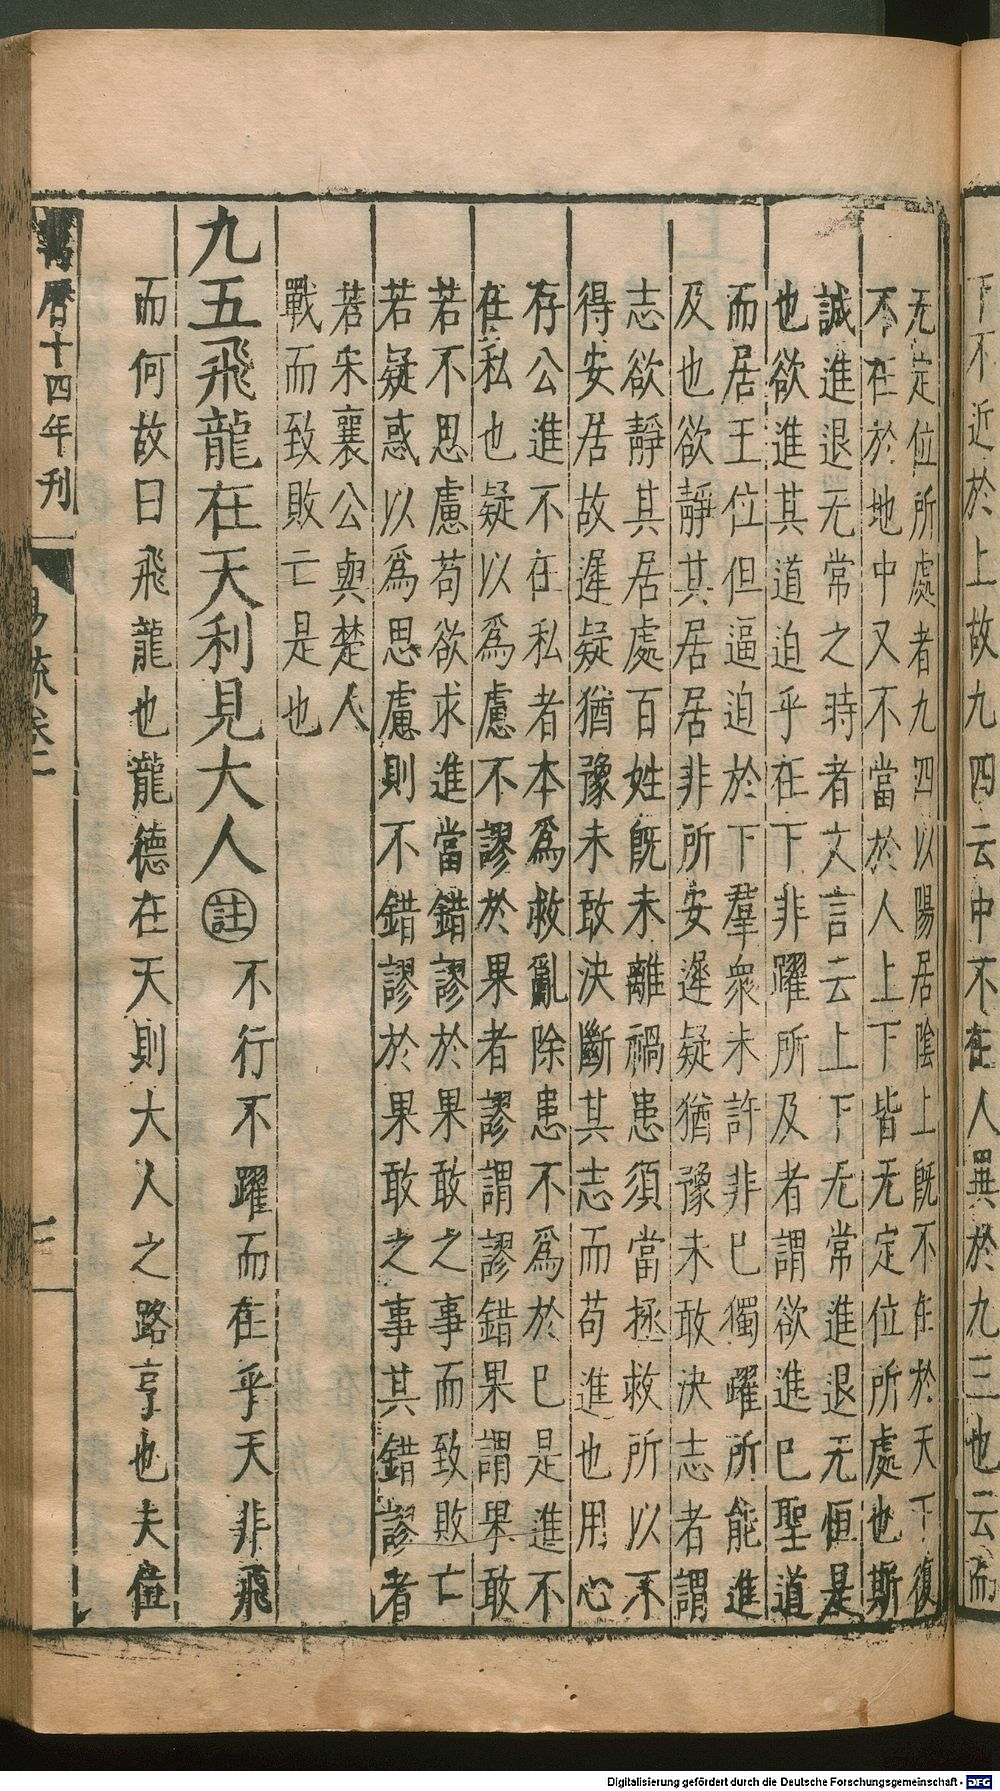 下不近於上故九四云中不在人異於九三也云而
无定位所處者九四以陽居陰上既不在於天下復
不在於地中又不當於人上下皆无定位所處也斯
誠進退无常之時者文言云上下无常進退无恒是
也欲進其道迫乎在下非躍所及者謂欲進己聖道
而居王位但逼迫於下羣衆未許非己獨躍所能進
及也欲靜其居居非所安遲疑猶豫未敢決志者謂
志欲靜其居處百姓既未離禍患須當拯救所以不
得安居故遲疑猶豫未敢決斷其志而苟進也用心
存公進不在私者本爲救亂除患不爲於己是進不
在私也疑以爲慮不謬於果者謬謂謬錯果謂果敢
若不思慮苟欲求進當錯謬於果敢之事而致敗亡
若疑惑以爲思慮則不錯謬於果敢之事其錯謬者
若宋襄公與楚人
戰而致敗亡是也
九五飛龍在天利見大人 註 不行不躍而在乎天非飛
而何故曰飛龍也龍德在天則大人之路亨也夫位
萬曆十四年刊
易疏卷一
Digitalisierung gefördert durch die Deutsche Forschungsgemeinschaft - DFG